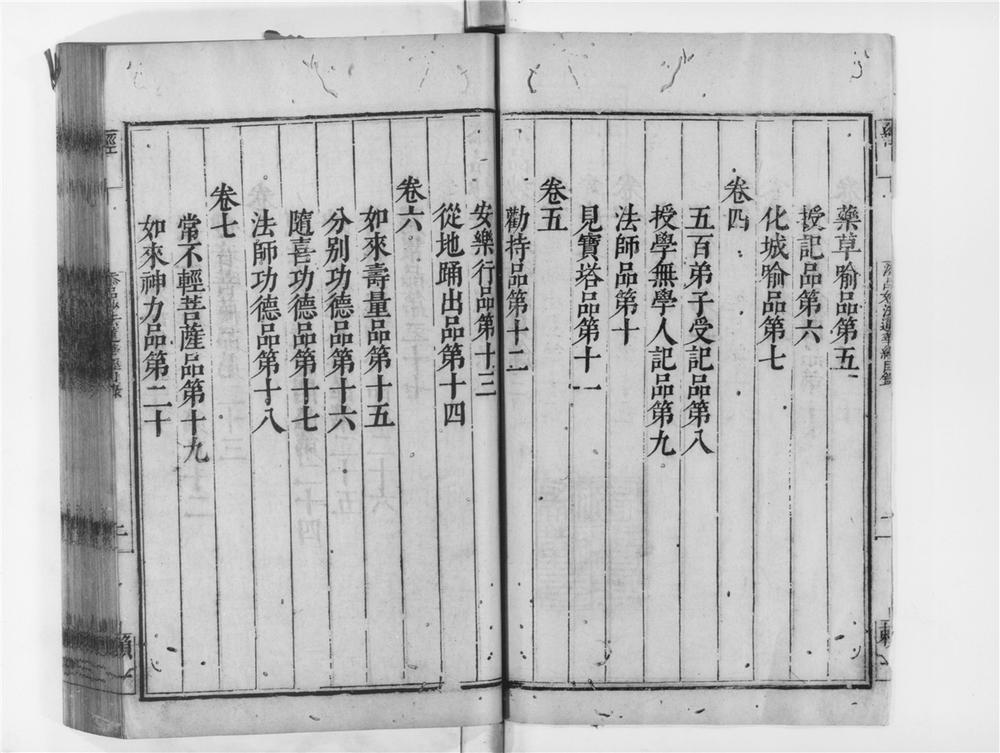 藥草喻品第五
授記品第六
化城喻品第七
卷四
五百弟子受記品第八
授學無學人記品第九
法師品第十
見寶塔品第十一
卷五
勸持品第十二
安樂行品第十三
從地踊出品第十四
卷六
如來壽量品第十五
分别功德品第十六
隨喜功德品第十七
法師功德品第十八
卷七
常不輕菩薩品第十九
如來神力品第二十